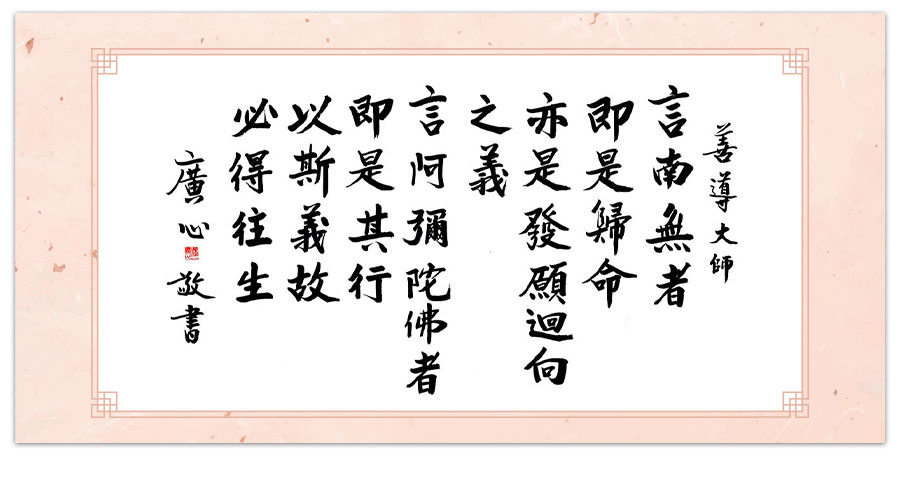 善導大師
言南無者
即是歸命
亦是發願迴向
之義
言阿彌陀佛者
即是其行
以斯義故
必得往生
廣心
敬書